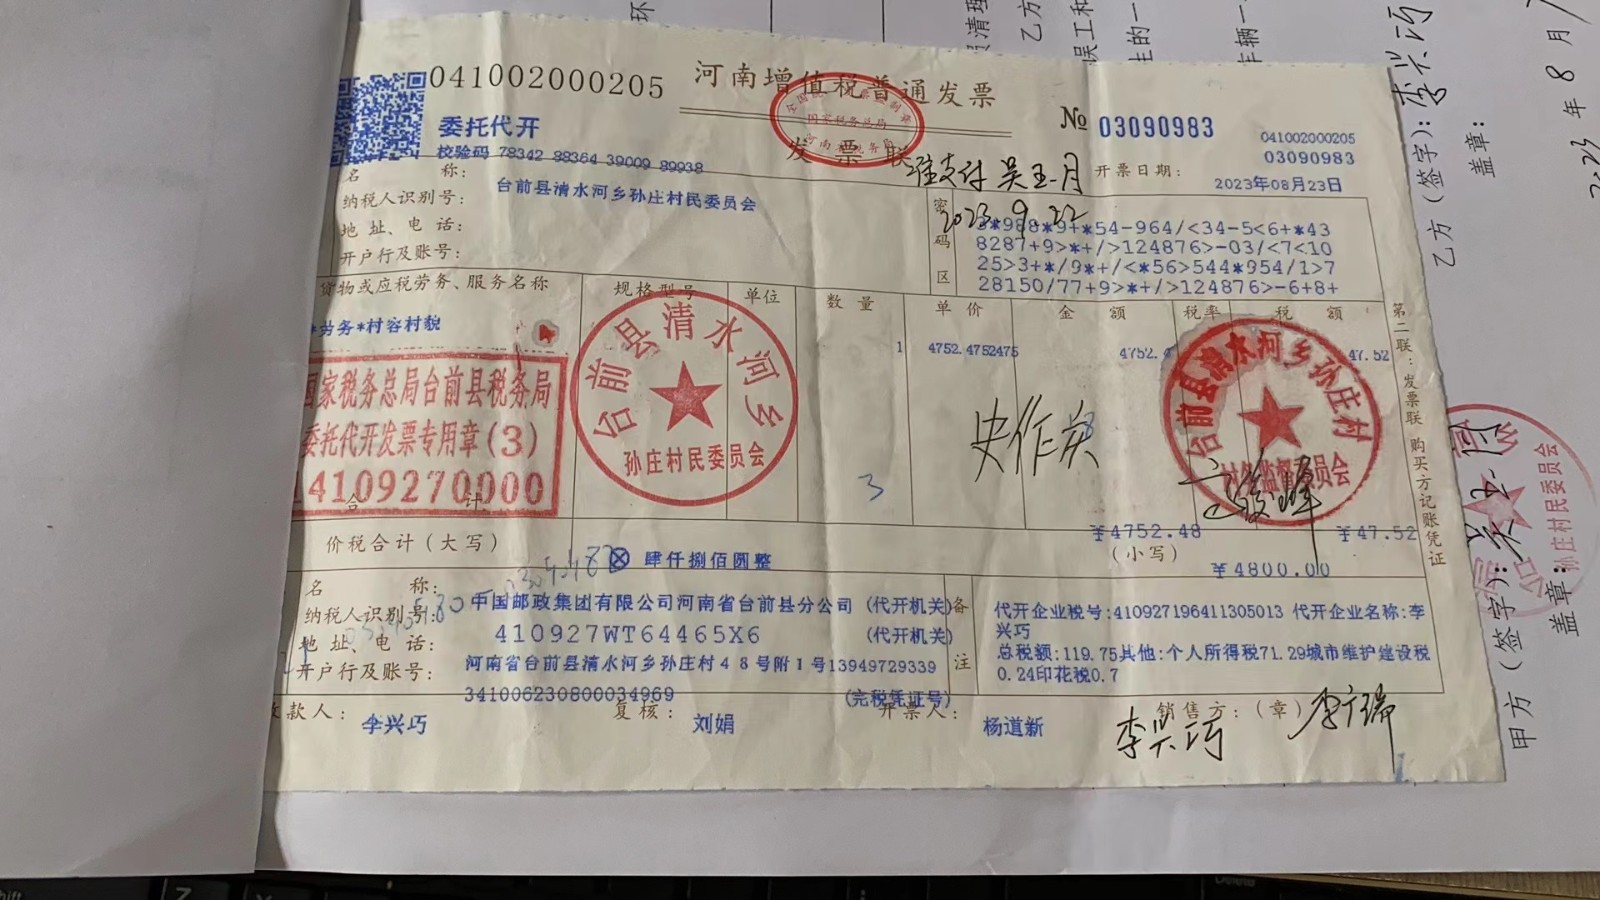 041002000205
河南增值税普通发票
发票联
国家税务总局
委托代开
校验码 78342 88364 39009 89938
№ 03090983
041002000205
03090983
开票日期：
2023年08月23日
准支付 吴玉月
2023.9.22
名 称：
台前县清水河乡孙庄村民委员会
纳税人识别号：
地址、电话：
开户行及账号：
密码区
8287+9>*+/>124876>-03/<7<10
25>3+*/9*+/<*56>544*954/1>7
28150/77+9>*+/>124876>-6+8+
货物或应税劳务、服务名称
规格型号
单位
数量
单价
金额
税率
税额
*劳务*村容村貌
1
4752.4752475
47.52
国家税务总局台前县税务局
委托代开发票专用章(3)
4109270000
台前县清水河乡
孙庄村民委员会
台前县清水河乡孙庄村
村务监督委员会
3
合计
￥4752.48
￥47.52
价税合计（大写）
肆仟捌佰圆整
（小写）
￥4800.00
名 称：
中国邮政集团有限公司河南省台前县分公司 (代开机关)
纳税人识别号：
410927WT64465X6 (代开机关)
地址、电话：
河南省台前县清水河乡孙庄村48号附1号13949729339
开户行及账号：
341006230800034969 (完税凭证号)
备注
代开企业税号:410927196411305013 代开企业名称:李
兴巧
总税额:119.75其他:个人所得税71.29城市维护建设税
0.24印花税0.7
收款人：
李兴巧
复核：
刘娟
开票人：
杨道新
销售方：（章）
李兴巧
李广瑞
第二联：发票联 购买方记账凭证
乙方（签字）：李兴巧
盖章：
2023 年 8 月
甲方（签字）：吴玉月
盖章：
孙庄村民委员会